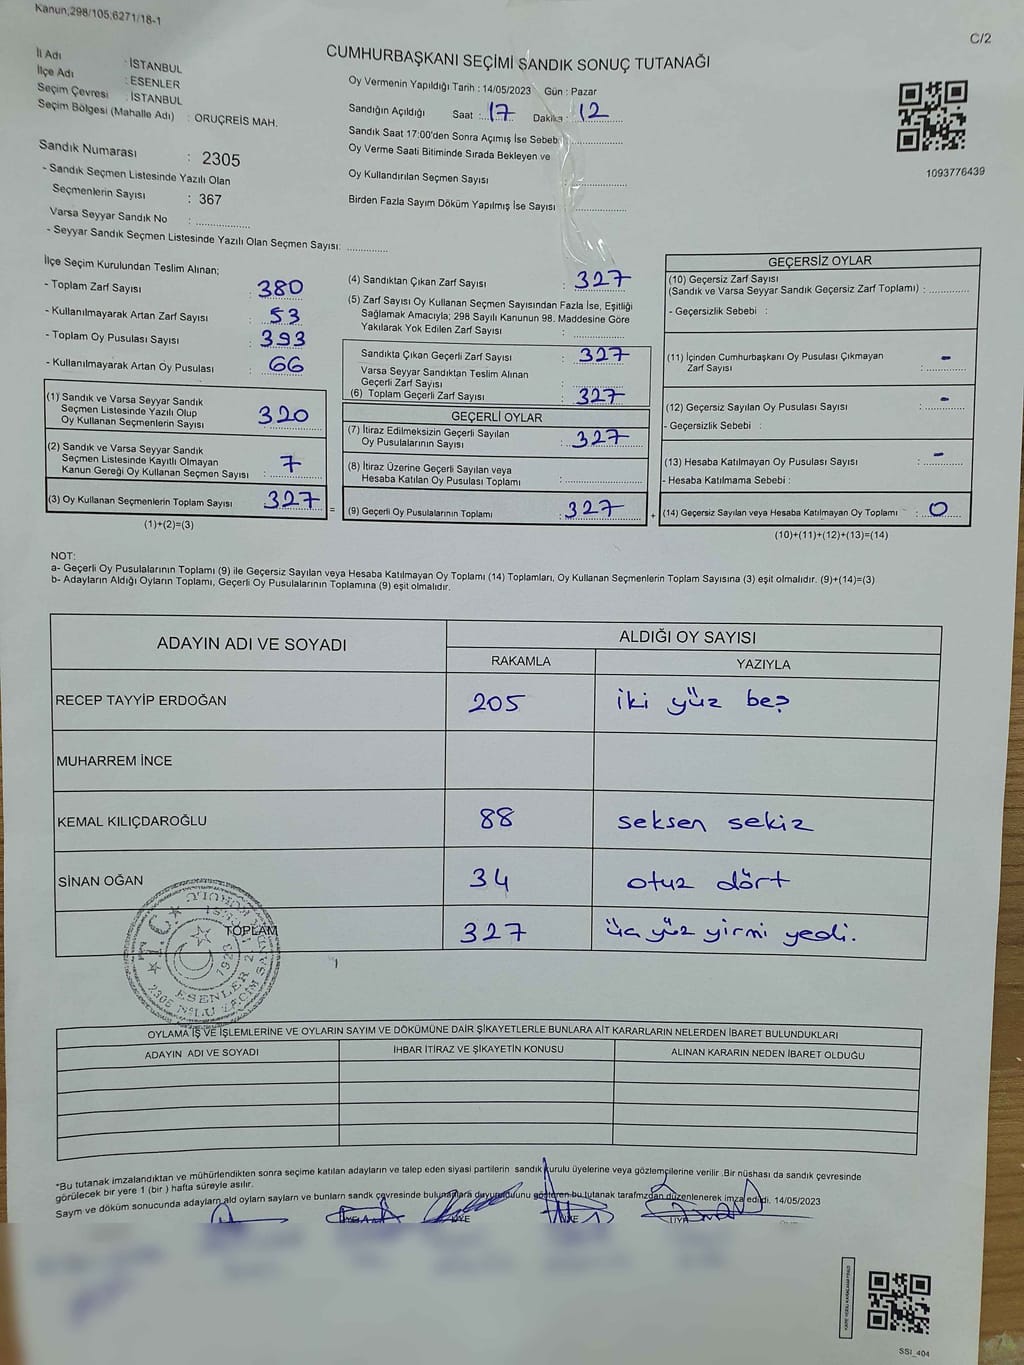 Kanun;298/105,6271/18-1
C/2
CUMHURBAŞKANI SEÇİMİ SANDIK SONUÇ TUTANAĞI
İl Adı : İSTANBUL
İlçe Adı : ESENLER
Seçim Çevresi : İSTANBUL
Seçim Bölgesi (Mahalle Adı) : ORUÇREİS MAH.
Sandık Numarası : 2305
- Sandık Seçmen Listesinde Yazılı Olan
Seçmenlerin Sayısı : 367
Varsa Seyyar Sandık No :
- Seyyar Sandık Seçmen Listesinde Yazılı Olan Seçmen Sayısı:
Oy Vermenin Yapıldığı Tarih : 14/05/2023 Gün : Pazar
Sandığın Açıldığı Saat : 17 Dakika : 12
Sandık Saat 17:00'den Sonra Açımış İse Sebeb :
Oy Verme Saati Bitiminde Sırada Bekleyen ve
Oy Kullandırılan Seçmen Sayısı :
Birden Fazla Sayım Döküm Yapılmış İse Sayısı
1093776439
İlçe Seçim Kurulundan Teslim Alınan;
- Toplam Zarf Sayısı : 380
- Kullanılmayarak Artan Zarf Sayısı : 53
- Toplam Oy Pusulası Sayısı : 393
- Kullanılmayarak Artan Oy Pusulası : 66
(1) Sandık ve Varsa Seyyar Sandık
Seçmen Listesinde Yazılı Olup
Oy Kullanan Seçmenlerin Sayısı : 320
(2) Sandık ve Varsa Seyyar Sandık
Seçmen Listesinde Kayıtlı Olmayan
Kanun Gereği Oy Kullanan Seçmen Sayısı : 7
(3) Oy Kullanan Seçmenlerin Toplam Sayısı : 327
(1)+(2)=(3)
=
(4) Sandıktan Çıkan Zarf Sayısı : 327
(5) Zarf Sayısı Oy Kullanan Seçmen Sayısından Fazla İse, Eşitliği
Sağlamak Amacıyla; 298 Sayılı Kanunun 98. Maddesine Göre
Yakılarak Yok Edilen Zarf Sayısı :
Sandıkta Çıkan Geçerli Zarf Sayısı : 327
Varsa Seyyar Sandıktan Teslim Alınan
Geçerli Zarf Sayısı :
(6) Toplam Geçerli Zarf Sayısı : 327
GEÇERLİ OYLAR
(7) İtiraz Edilmeksizin Geçerli Sayılan
Oy Pusulalarının Sayısı : 327
(8) İtiraz Üzerine Geçerli Sayılan veya
Hesaba Katılan Oy Pusulası Toplamı :
(9) Geçerli Oy Pusulalarının Toplamı : 327
+
GEÇERSİZ OYLAR
(10) Geçersiz Zarf Sayısı
(Sandık ve Varsa Seyyar Sandık Geçersiz Zarf Toplamı) :
- Geçersizlik Sebebi :
(11) İçinden Cumhurbaşkanı Oy Pusulası Çıkmayan
Zarf Sayısı : -
(12) Geçersiz Sayılan Oy Pusulası Sayısı : -
- Geçersizlik Sebebi :
(13) Hesaba Katılmayan Oy Pusulası Sayısı : -
- Hesaba Katılmama Sebebi :
(14) Geçersiz Sayılan veya Hesaba Katılmayan Oy Toplamı : 0
(10)+(11)+(12)+(13)=(14)
NOT:
a- Geçerli Oy Pusulalarının Toplamı (9) ile Geçersiz Sayılan veya Hesaba Katılmayan Oy Toplamı (14) Toplamları, Oy Kullanan Seçmenlerin Toplam Sayısına (3) eşit olmalıdır. (9)+(14)=(3)
b- Adayların Aldığı Oyların Toplamı, Geçerli Oy Pusulalarının Toplamına (9) eşit olmalıdır.
ADAYIN ADI VE SOYADI
ALDIĞI OY SAYISI
RAKAMLA YAZIYLA
RECEP TAYYİP ERDOĞAN 205 iki yüz beş
MUHARREM İNCE
KEMAL KILIÇDAROĞLU 88 seksen sekiz
SİNAN OĞAN 34 otuz dört
TOPLAM 327 üç yüz yirmi yedi.
T.C.
ESENLER
OYLAMA İŞ VE İŞLEMLERİNE VE OYLARIN SAYIM VE DÖKÜMÜNE DAİR ŞİKAYETLERLE BUNLARA AİT KARARLARIN NELERDEN İBARET BULUNDUKLARI
ADAYIN ADI VE SOYADI İHBAR İTİRAZ VE ŞİKAYETİN KONUSU ALINAN KARARIN NEDEN İBARET OLDUĞU
*Bu tutanak imzalandıktan ve mühürlendikten sonra seçime katılan adayların ve talep eden siyasi partilerin sandık kurulu üyelerine veya gözlemçilerine verilir .Bir nüshası da sandık çevresinde
görülecek bir yere 1 (bir ) hafta süreyle asılır.
Saym ve döküm sonucunda adayların ald oyların sayları ve bunların sandk çevresinde bulunanlara duyurulduğunu gösteren bu tutanak tarafmzdan düzenlenerek imza edildi. 14/05/2023
ÜYE
SSI_404